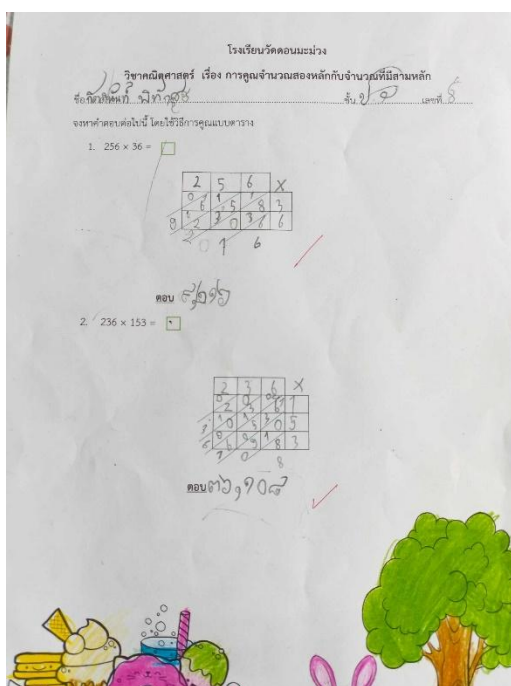 โรงเรียนวัดดอนมะม่วง
วิชาคณิตศาสตร์ เรื่อง การคูณจำนวนสองหลักกับจำนวนที่มีสามหลัก
ชื่อ ชั้น ป เลขที่ ๕
จงหาคำตอบต่อไปนี้ โดยใช้วิธีการคูณแบบตาราง
1. 256 × 36 =
2 5 6 X
0 1 1
6 5 8 3
9 1 3 3
2 0 6 6
2 1 6
ตอบ ๙,๒๑๖
2. 236 × 153 =
2 3 6 X
0 0 0
2 3 6 1
1 1 3
0 5 0 5
6 0 0 1
6 9 8 3
1 0 8
ตอบ ๓๖,๑๐๘